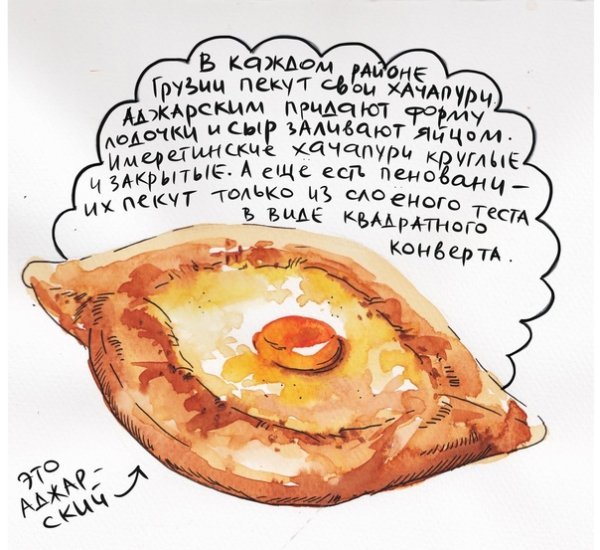 В каждом районе
Грузии пекут свои хачапури.
Аджарским придают форму
лодочки и сыр заливают яйцом.
Имеретинские хачапури круглые
и закрытые. А ещё есть пеновани –
их пекут только из слоёного теста
в виде квадратного
конверта.
это
аджар-
ский